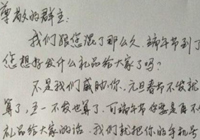 尊敬的群主：
我们跟您混了那么久，端午节到了
您想好发什么礼品给大家了吗？
不是我们威胁你，元旦春节不发就
算了，五一不发也算了，可端午节你要是再不
礼品给大家的话，我们就把你的手机号